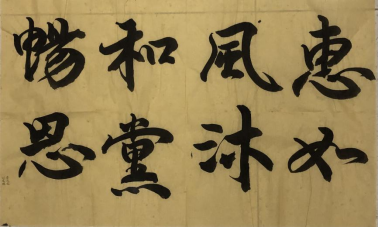 惠風和暢
如沐黨恩